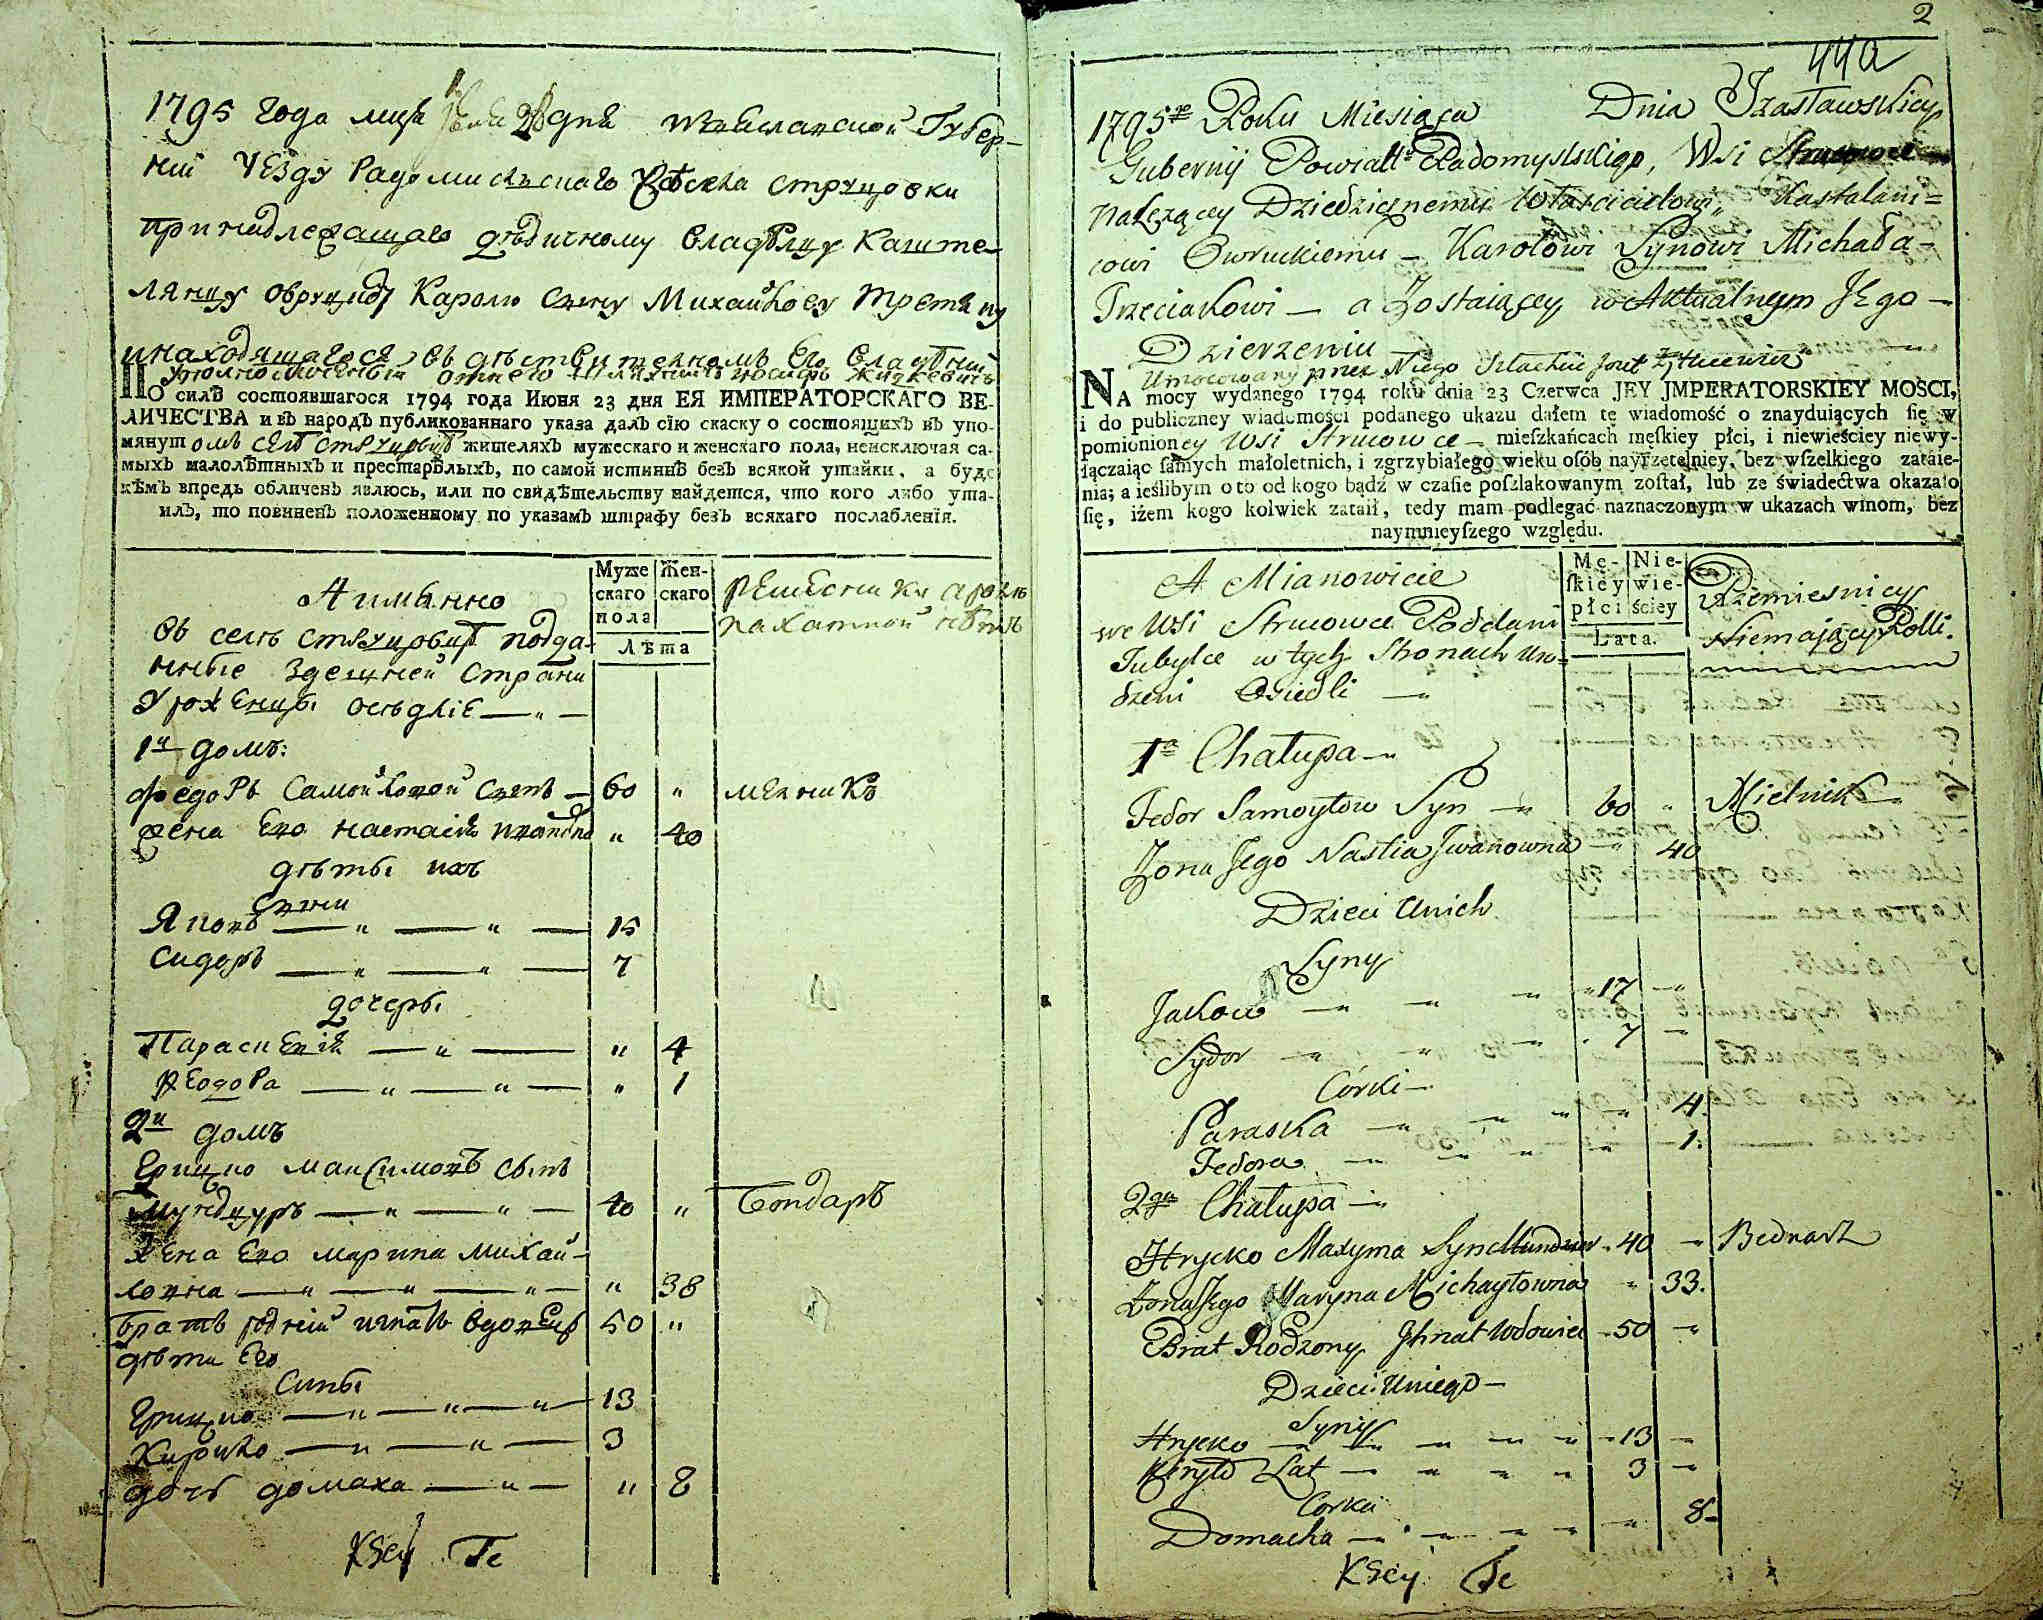 1795 года мцa дня Изяславской Губер-
нии Уезду Радомисльскаго Стрuцовки
принадлежащаго дедичному владелцу Каште-
лянцу Овруцкому Каролю сыну Михайлову Третяку
и находящагося въ действителномъ Его владении
Уполномоченный от него Шляхтичъ
ПО силѣ состоявшагося 1794 года Июня 23 дня ЕЯ ИМПЕРАТОРСКАГО ВЕ-
ЛИЧЕСТВА и въ народъ публикованнаго указа далъ сїю скаску о состоящихъ въ упо-
мянутомъ селѣ жителяхъ мужескаго и женскаго пола, неисключая са-
мыхъ малолѣтныхъ и престарѣлыхъ, по самой истиннѣ безъ всякой утайки, а буде
кѣмъ впредь обличенъ явлюсь, или по свидѣтельству найдется, что кого либо ута-
илъ, то повиненъ положенному по указамъ штрафу безъ всякаго послабленїя.
А имянно
Муже
скаго
пола
Жен-
скаго
Лѣта
въ селѣ подда-
нные здешней страны
Уроженцы оседлiе
1й домъ:
федоръ Самойловой сынъ 60 " мелникъ
жена Его настасiя ивановна " 40
дѣты ихъ
Сыны
Яковъ 15
Сидоръ 7
дочеры
Параскевiя " 4
феодора " 1
2й домъ
Грицко максимовъ сынъ
мундзуръ 40 " Бондаръ
жена Его марина михай-
ловна " 38
братъ роднiй игнатъ вдовецъ 50 "
дѣти Его
Сины
Грицко 13
Кирилко 3
дочь домаха " 8
2
44a
1795го Roku Miesiąca Dnia Izasławskiey
Gubernij Powiattu Radomyslskigo, Wsi
Należącey Dziedzicznemu Własiicielowi, Kasztalani-
cowi Owruckiemu - Karolowi Synowi Michała -
Trzeciakowi - a Zostaiącey w Aktualnym Jego -
Dzierzeniu
Umocowany przez Niego Szlachcic Jozef
NA mocy wydanego 1794 roku dnia 23 Czerwca JEY JMPERATORSKIEY MOSCI,
i do publiczney wiadomości podanego ukazu dałem tę wiadomość o znayduiących się w
pomionioney Wsi Strucowce - mieszkańcach męskiey płci, i niewieściey niewy-
łączaiąc samych małoletnich, i zgrzybiałego wieku osób nayrzetelniey, bez wszelkiego zataie-
nia; a ieślibym o to od kogo bądź w czasie poszlakowanym został, lub ze świadectwa okazało
się, iżem kogo kolwiek zataił, tedy mam podlegać naznaczonym w ukazach winom, bez
naymnieyszego względu.
A Mianowicie
Mę-
skiey
płci
Nie-
wie-
ściey
Lata.
Rzemiesnicy
Niemaiący Rolli.
we Wsi Strucowce Poddani
Tubylce w tych Stronach Uro-
dzeni Osiedli
1a Chałupa
Fedor Samoyłow Syn 60 " Mielnik
Zona Jego Nastia Jwanowna " 40
Dzieci Unich
Syny
Jakow 17
Sydor 7
Córki
Paraska 4.
Fedora 1.
2ga Chałupa
Hrycko Maxyma Syn Mundzur 40 Bednarz
Zona Jego Maryna Michayłowna " 33.
Brat Rodzony Jhnat Wdowiec 50
Dzieci Uniego
Syny
Hrycko 13
Kiryło Lat 3
Corka
Domacha 8